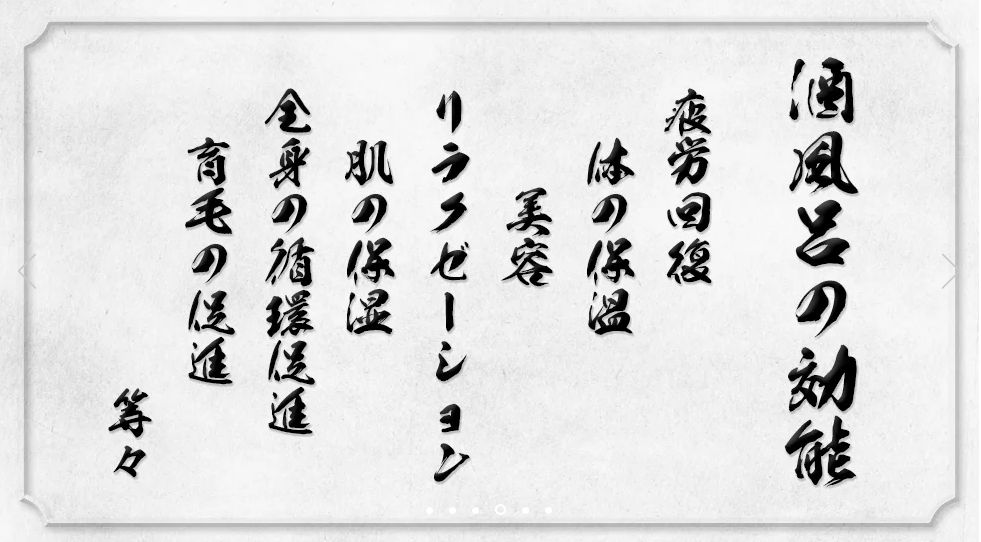 酒風呂の効能
疲労回復
体の保温
美容
リラクゼーション
肌の保湿
全身の循環促進
育毛の促進
等々